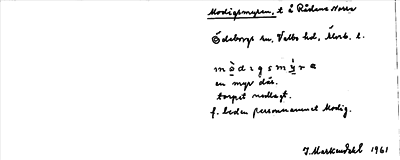 Modigsmyren, t å Rådane Norra
Ödeborgs sn, Valbo hd, Älvsb. l.
mòdıgsmýra
en myr där.
torpet nedlagt.
f. leden personnamnet Modig.
J. Markendahl 1961